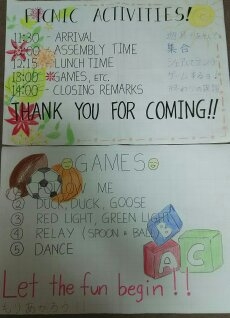 PICNIC ACTIVITIES!
11:30 - ARRIVAL
:00 - ASSEMBLY TIME 集合
12:15 - LUNCH TIME
13:00 - GAMES, ETC.
14:00 - CLOSING REMARKS
THANK YOU FOR COMING!!
GAMES
LOW ME
② DUCK, DUCK, GOOSE
③ RED LIGHT, GREEN LIGHT
④ RELAY (SPOON + BALL)
⑤ DANCE
B
A C
Let the fun begin!!
もりあがろう!!